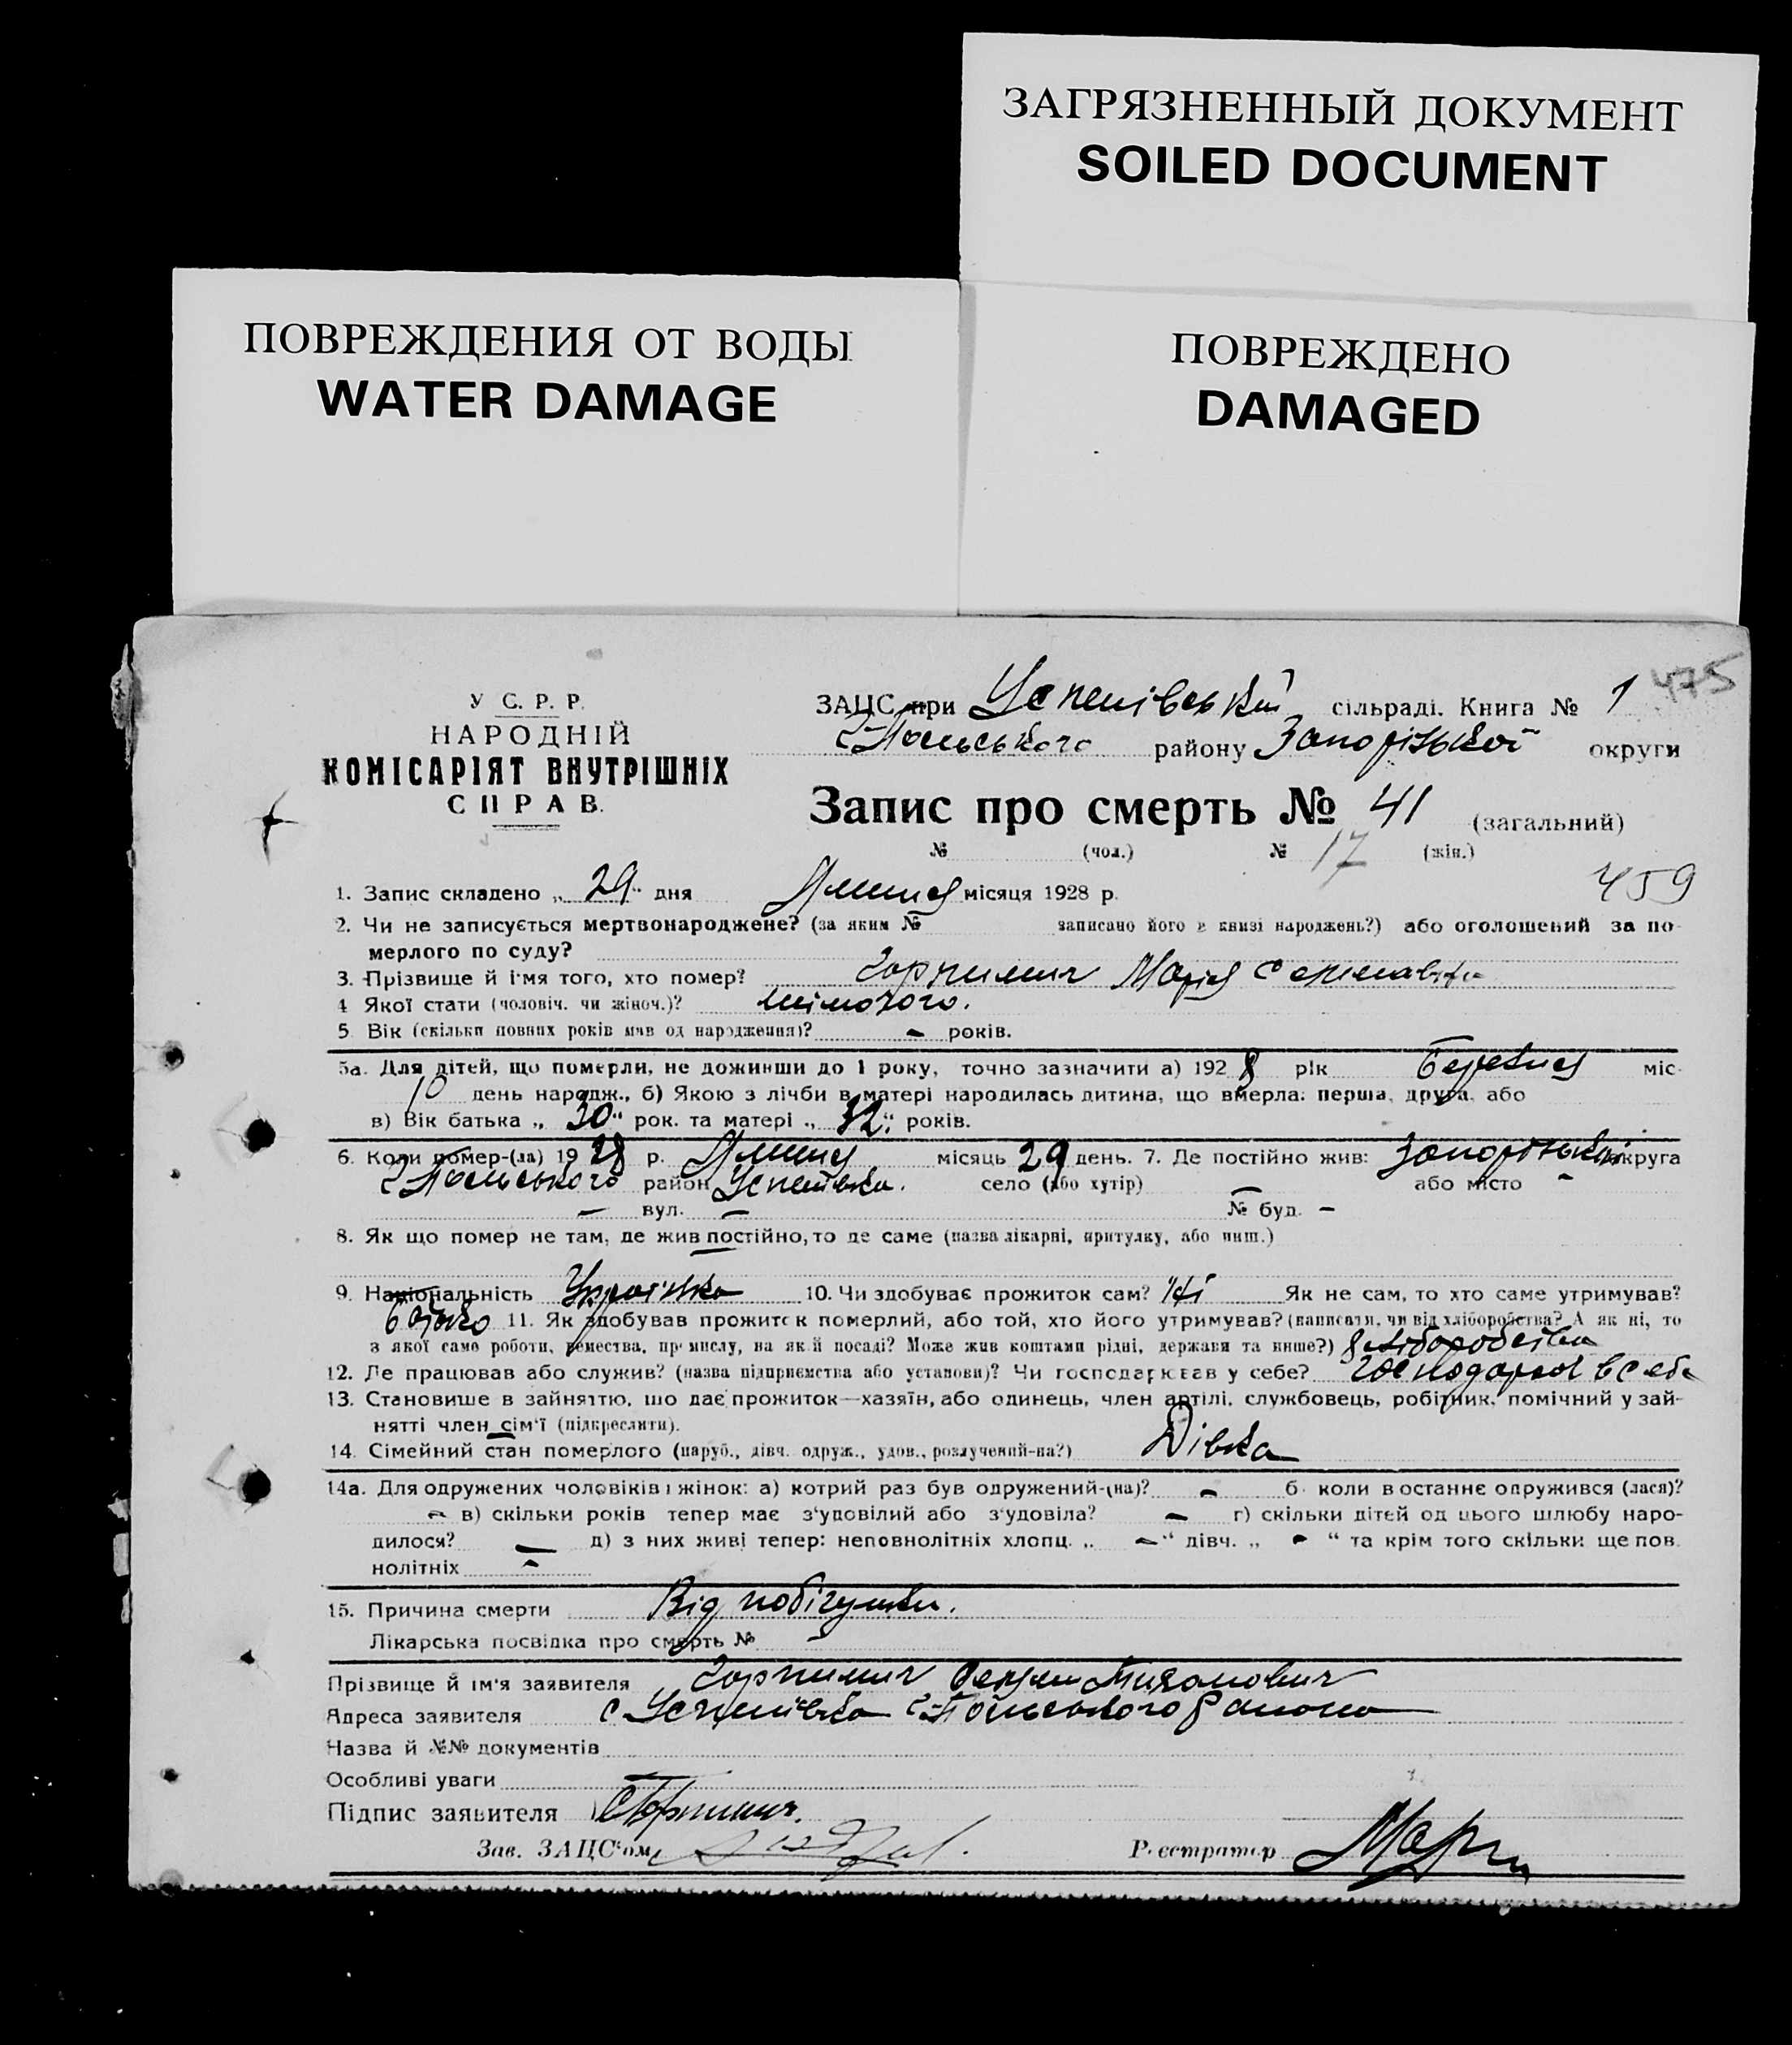 ЗАГРЯЗНЕННЫЙ ДОКУМЕНТ
SOILED DOCUMENT
ПОВРЕЖДЕНИЯ ОТ ВОДЫ
WATER DAMAGE
ПОВРЕЖДЕНО
DAMAGED
475
У С. Р. Р.
НАРОДНІЙ
КОМІСАРІЯТ ВНУТРІШНІХ
СПРАВ.
ЗАЦС при Успенівській сільраді. Книга № 1
району Запорізької округи
Запис про смерть № 41 (загальний)
№ (чол.) № 17 (жін.)
459
1. Запис складено „ 29 “ дня Липня місяця 1928 р.
2. Чи не записується мертвонароджене? (за яким № записано його в книзі народжень?) або оголошений за по-
мерлого по суду?
3. Прізвище й ім'я того, хто помер? Марія
4 Якої стати (чоловіч. чи жіноч.)?
5. Вік (скільки повних років мав од народження)? — років.
5а. Для дітей, що померли, не доживши до 1 року, точно зазначити а) 192 8 рік Березня міс-
10 день народж., б) Якою з лічби в матері народилась дитина, що вмерла: перша, друга, або
в) Вік батька „ 30 “ рок. та матері „ 32 “ років.
6. Коли помер-(ла) 19 28 р. Липня місяць 29 день. 7. Де постійно жив: округа
район Успенівка. село (або хутір) — або місто -
— вул. — № буд. —
8. Як що помер не там, де жив постійно, то де саме (назва лікарні, притулку, або инш.)
—
9. Національність Українка 10. Чи здобуває прожиток сам? Ні Як не сам, то хто саме утримував?
батько 11. Як здобував прожиток померлий, або той, хто його утримував? (написати, чи від хліборобства? А як ні, то
з якої само роботи, ремества, промислу, на якій посаді? Може жив коштами рідні, держави та инше?) хліборобства
12. Де працював або служив? (назва підприємства або установи)? Чи господарював у себе? в себе
13. Становише в зайняттю, що дає прожиток—хазяїн, або одинець, член артілі, службовець, робітник, помічний у зай-
нятті член сім'ї (підкреслити).
14. Сімейний стан померлого (паруб., дівч. одруж., удов., розлучений-на?) Дівка
14а. Для одружених чоловіків і жінок: а) котрий раз був одружений-(на)? — б. коли востаннє одружився (лася)?
— в) скільки років тепер має з'удовілий або з'удовіла? — г) скільки дітей од цього шлюбу наро-
дилося? — д) з них живі тепер: неповнолітніх хлопц. „ — “ дівч. „ — “ та крім того скільки ще пов.
нолітніх —
15. Причина смерти Від
Лікарська посвідка про смерть № -
Прізвище й ім'я заявителя
Адреса заявителя с Успенівка
Назва й №№ документів
Особливі уваги —
Підпис заявителя
Зав. ЗАЦС'ом Реєстратор